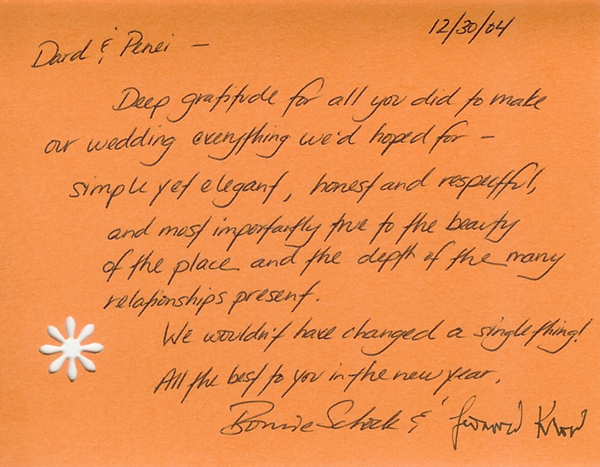 12/30/04
Dard & Penei —
Deep gratitude for all you did to make
our wedding everything we'd hoped for —
simple yet elegant, honest and respectful,
and most importantly true to the beauty
of the place and the depth of the many
relationships present.
We wouldn't have changed a single thing!
All the best to you in the new year.
Bonnie Schock &